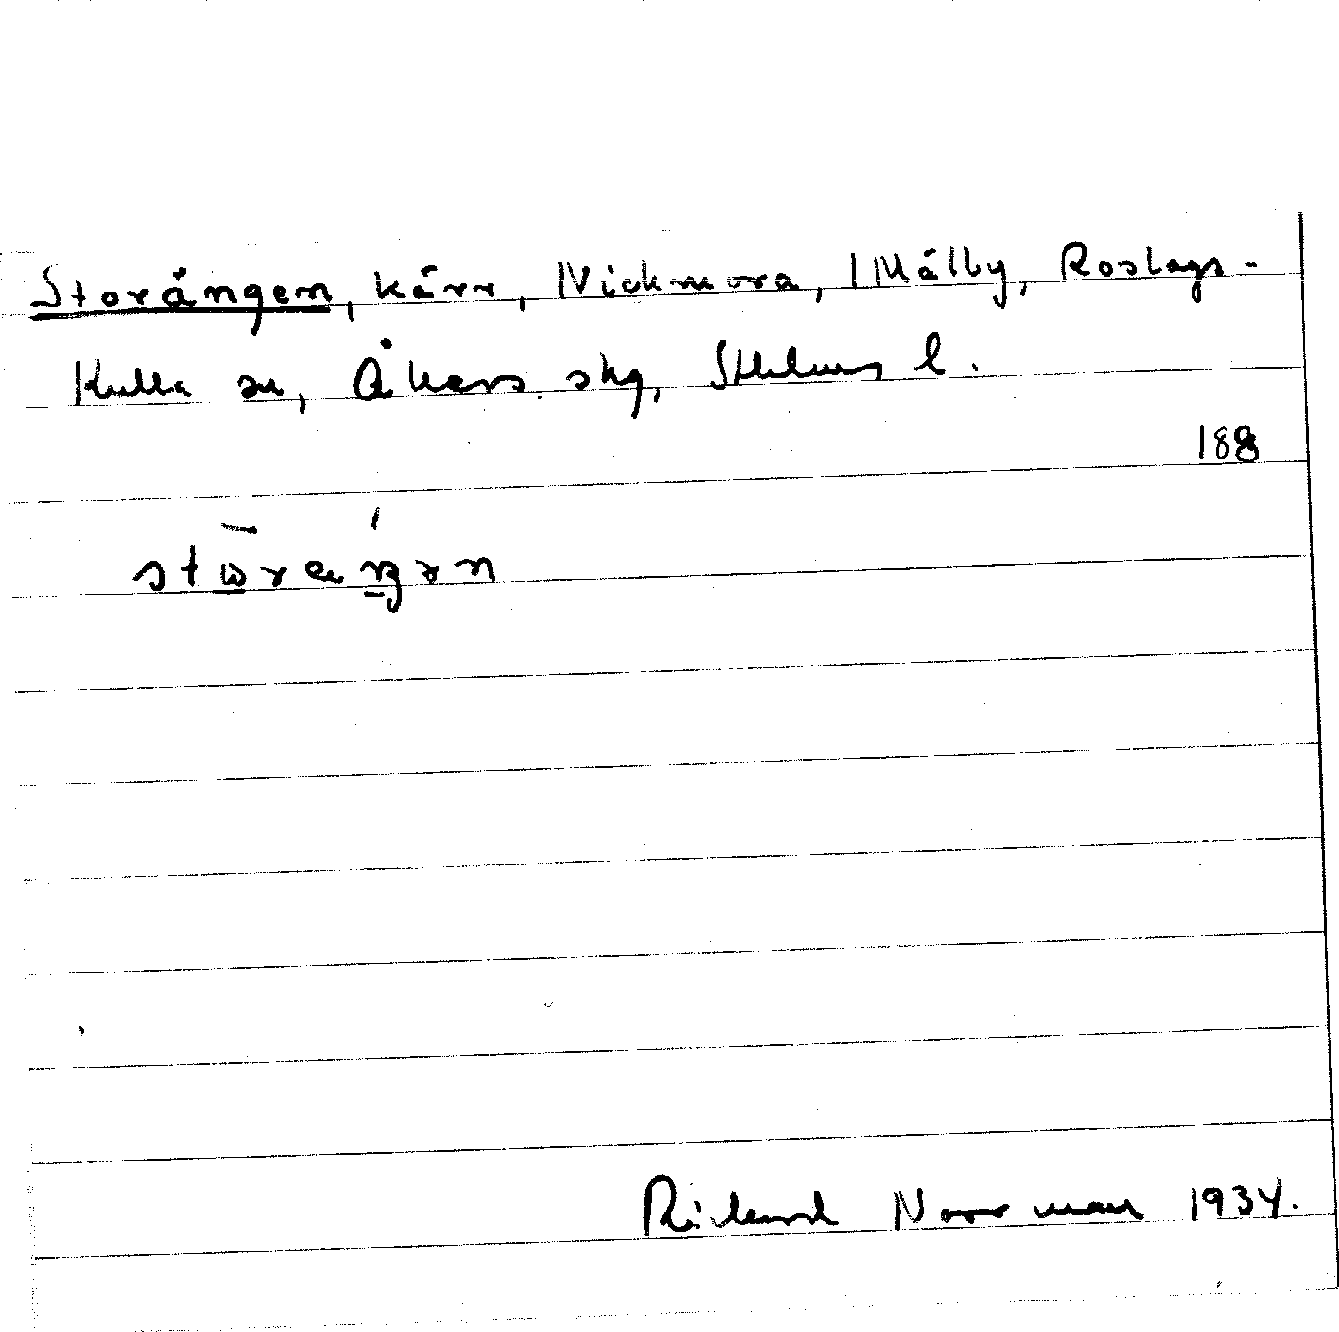 Storängen, kärr, Nickmora, Mälby, Roslags-
Kulla sn, Åkers skg, Sthlms l.
188
Rickard Norrman 1934.